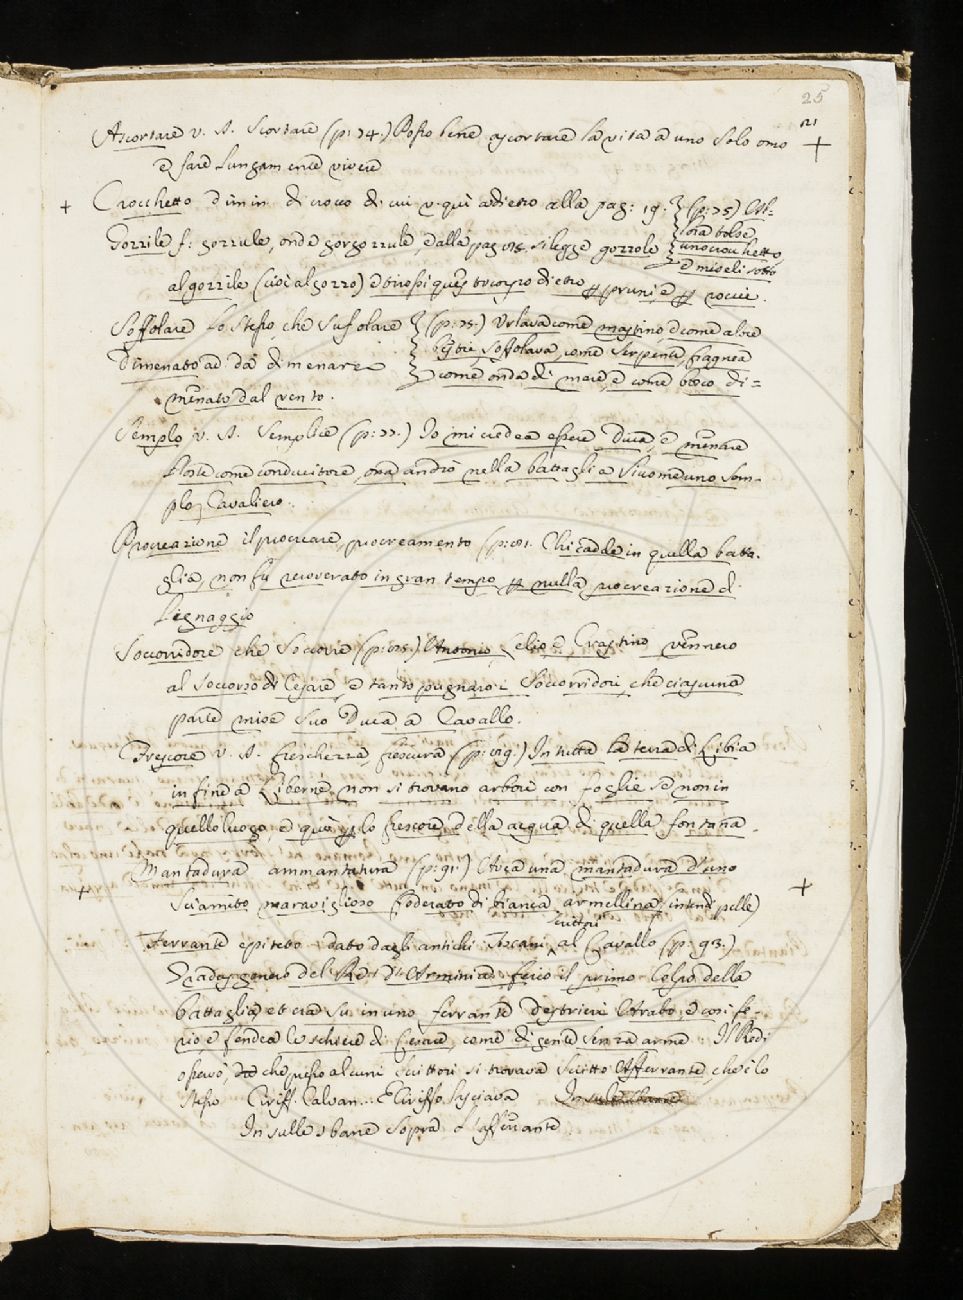 25
21
Ascortare v. A. Scortare (p: 74.) Posso bene ascortare la vita a uno solo omo +
e fare lungamente vivere
+ Crocchetto dimin. di crocco di cui v. qui adietro alla pag: 19. (p: 75) Al-
lora tolse
Gorrile f: gorrule, onde gorgorrule, e dalla pag si legge gorrole uno crocchetto,
e miseli sotto
al gorrile (cioè al gorro) e tirossi questo corpo dietro p pruni, e p roccie.
Soffolare lo stesso, che Sufolare (p: 75.) Urlava come mastino, e come altre
bestie, soffolava come serpente, fragnea
Dimenato ad da dimenare come onda di mare, e come bosco di=
menato dal vento.
Semplo v. A. Semplice (p: 77.) Io mi credea essere Duca, e menare
Oste come conducitore, ora andrò nella battaglia siccome uno sem-
plo Cavaliero.
Procreazione il procreare, procreamento (p: 81. Chi cadde in quella batta-
glia, non fu recoverato in gran tempo p nulla procreazione di
Legnaggio
Soccorridore che soccorre (p: 85.) Antonio, Lelio e Crastino vennero
al soccorso di Cesare, e tanto pugnaro i Soccorridori che ciascuna
parte mise suo Duca a Cavallo.
Frescore v. A. frescherza, frescura (p: 89.) In tutta la terra di Libia
in fine a Liberne, non si trovano arbori con foglie se non in
quello luogo, e qui p lo frescore della acqua di quella fontana.
+ Mantadura ammantatura (p: 91.) Avea una mantadura d'uno +
Sciamito maraviglioso foderato di bianca armellina (intendi pelle)
scrittori
Ferrante epiteto dato dagli antichi Toscani al Cavallo (p: 93.)
genero del Re d'Arminia ferio il primo Colpo della
battaglia, et era su in uno ferrante destriere Arabo, e così fe-
rio, e fendea le schiere di Cesare, come di gente senza arme. Il Redi
osservò, che presso alcuni scrittori si trovava scritto Afferrante, che è lo
stesso Ciriff. Calvan...
In sulle sbarre sopra o l'afferrante